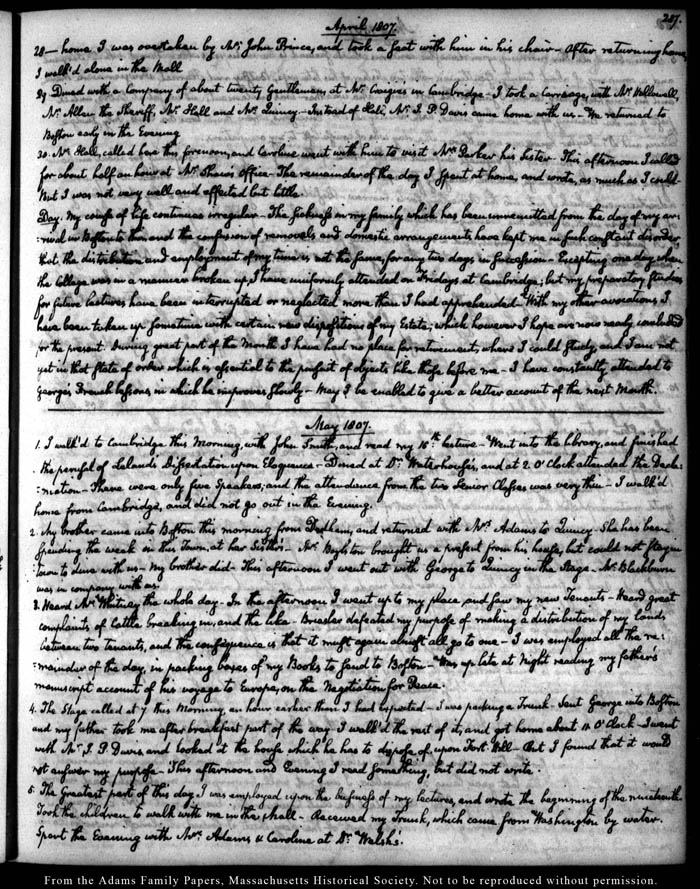 287.
April 1807.
28 — home I was overtaken by Mr. John Prince, and took a seat with him in his chair — After returning home,
I walk'd alone in the Mall
29 Dined with a Company of about twenty Gentlemen, at Mr. Craigie's in Cambridge — I took a Carriage, with Mr.
Mr. Allen the Sheriff, Mr. Hall and Mr. Quincy — Instead of Hall, Mr. I. P. Davis came home with us — We returned to
Boston early in the Evening
30. Mr. Hall, called here this forenoon, and Caroline went with him to visit Mrs. Parker his Sister — This afternoon I called
for about half an hour at Mr. Shaw's Office — The remainder of the day I spent at home, and wrote, as much as I could
But I was not very well and effected but little.
Day. My course of life continues irregular — The sickness in my family which has been unremitted from the day of my ar-
-rival in Boston to this and the confusion of removals and domestic arrangements have kept me in such constant disorder,
that the distribution and employment of my time is not the same, for any two days in succession — Excepting one day when
the College was in a manner broken up, I have uniformly attended on Fridays at Cambridge; but my preparatory studies
for future lectures have been interrupted or neglected more than I had apprehended — With my other avocations I
have been taken up sometime with certain new dispositions of my Estate; which however I hope are now nearly concluded
for the present. During great part of the Month I have had no place for retirement, where I could study, and I am not
yet in that State of order which is essential to the pursuit of objects like those before me — I have constantly attended to
George's French lessons in which he improves slowly — May I be enabled to give a better account of the next Month.
May 1807.
1. I walk'd to Cambridge this Morning, with John Smith, and read my 15th. lecture — Went into the library, and finished
the perusal of Dissertation upon Eloquence — Dined at Dr. Waterhouse's, and at 2. O'Clock attended the Decla-
-mation — There were only five Speakers; and the attendance from the two Senior Classes was very thin — I walk'd
home from Cambridge, and did not go out in the Evening.
2. My brother came into Boston this morning from Dedham, and returned with Mrs. Adams to Quincy. She has been
spending the week in this Town, at her Sister's — Mr. Boylston brought us a present from his house, but could not stay in
town to dine with us — My brother did — This afternoon I went out with George to Quincy in the Stage — Mr. Blackburn
was in company with us.
3. Heard Mr. Whitney the whole day — In the afternoon I went up to my place, and saw my new Tenants — Heard great
complaints of Cattle breaking in, and the like — Briesler defeated my purpose of making a distribution of my lands
between two tenants, and the consequence is that it must again almost all go to one — I was employed all the re-
-mainder of the day, in packing boxes of my Books to send to Boston — Was up late at Night reading my father's
manuscript account of his voyage to Europe, on the Negotiation for Peace.
4. The Stage called at 7 this Morning, an hour earlier than I had expected — I was packing a Trunk — Sent George into Boston
and my father took me after breakfast part of the way I walk'd the rest of it, and got home about 11 O'Clock — I went
with Mr. I. P. Davis and looked at the house which he has to dispose of, upon Fort-Hill — But I found that it would
not answer my purpose — This afternoon and Evening I read something, but did not write.
5. The Greatest part of this day I was employed upon the business of my lectures, and wrote the beginning of the nineteenth.
Took the children to walk with me in the Mall — Received my Trunk, which came from Washington by water.
Spent the Evening with Mrs. Adams & Caroline at Dr. Welsh's.
From the Adams Family Papers, Massachusetts Historical Society. Not to be reproduced without permission.